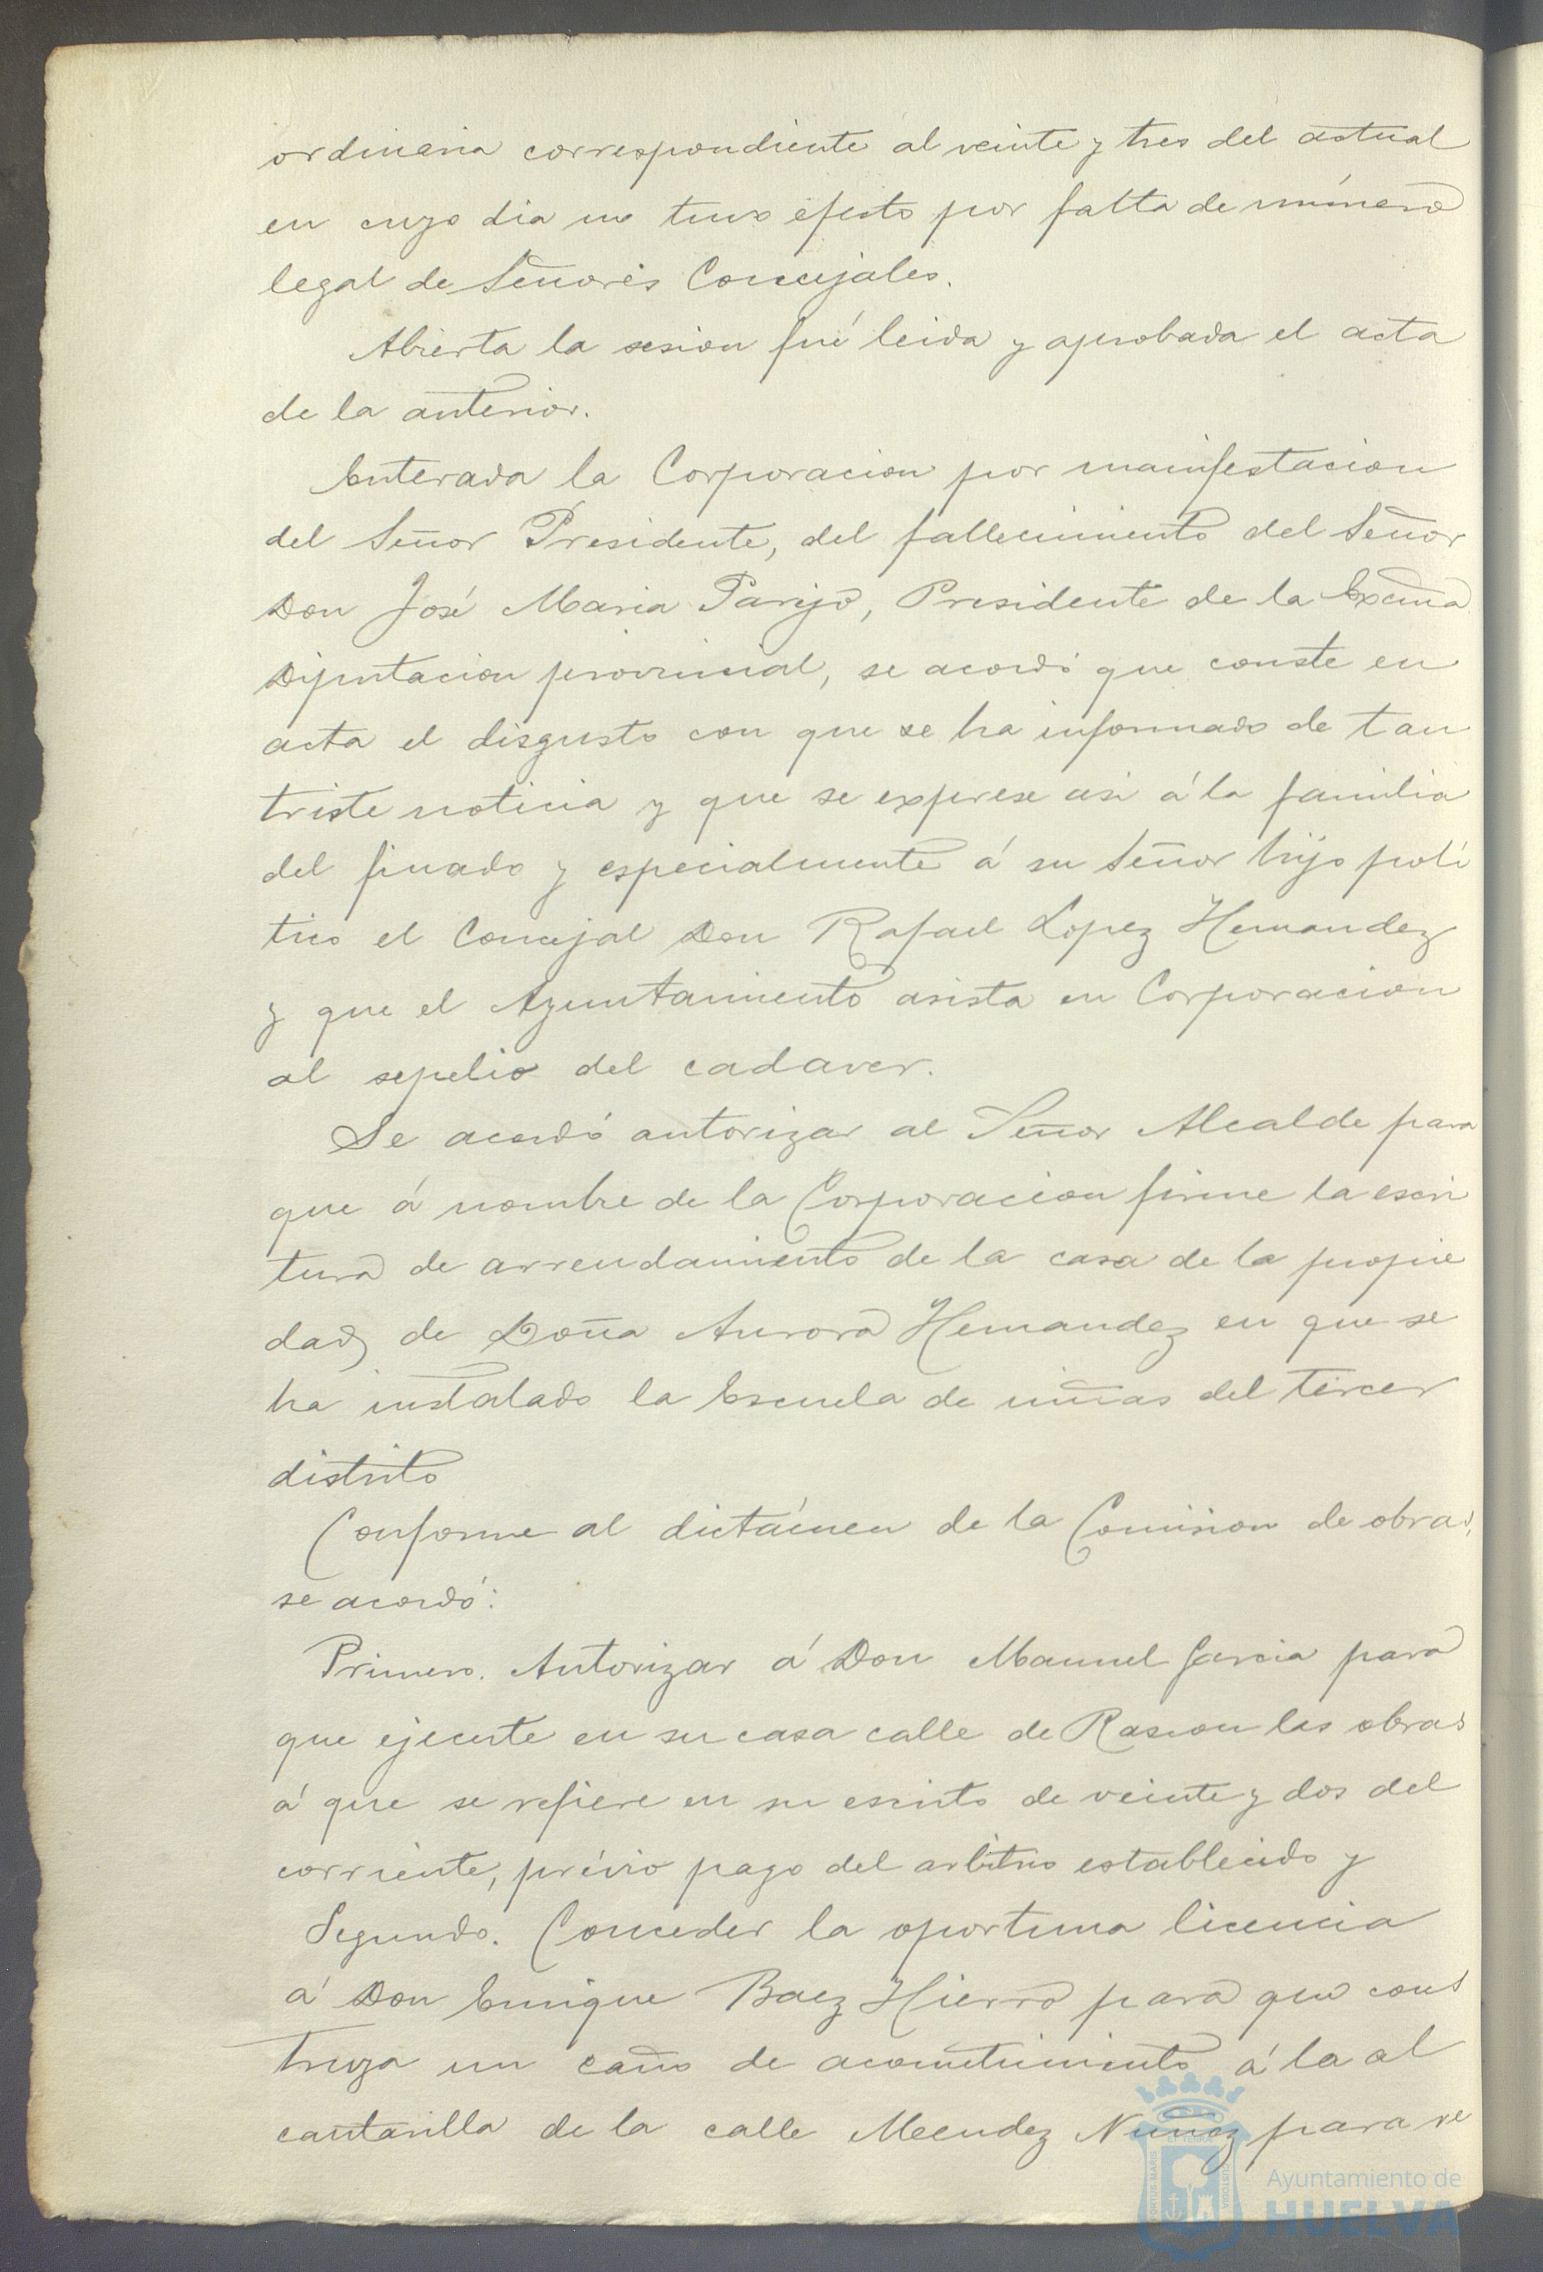 ordinaria correspondiente al veinte y tres del actual
en cuyo dia no tuvo efecto por falta de número
legal de Señores Concejales.
Abierta la sesion fué leida y aprobada el acta
de la anterior.
Enterada la Corporacion por manifestacion
del Señor Presidente, del fallecimiento del Señor
Don José Maria Parejo, Presidente de la Excma
Diputacion provincial, se acordó que conste en
acta el disgusto con que se ha informado de tan
triste noticia y que se exprese asi á la familia
del finado y especialmente á su Señor hijo polí
tico el Concejal Don Rafael Lopez Hernandez
y que el Ayuntamiento asista en Corporacion
al sepelio del cadaver.
Se acordó autorizar al Señor Alcalde para
que á nombre de la Corporacion firme la escri
tura de arrendamiento de la casa de la propie
dad de Doña Aurora Hernandez en que se
ha instalado la Escuela de niñas del tercer
distrito
Conforme al dictámen de la Comision de obras,
se acordó:
Primero. Autorizar á Don Manuel Garcia para
que ejecute en su casa calle de Rascon las obras
á que se refiere en su escrito de veinte y dos del
corriente, prévio pago del arbitrio establecido y
Segundo. Conceder la oportuna licencia
á Don Enrique Baez Hierro para que cons
truya un caño de acometimiento á la al
cantarilla de la calle Mendez Nuñez para ve
Ayuntamiento de
HUELVA